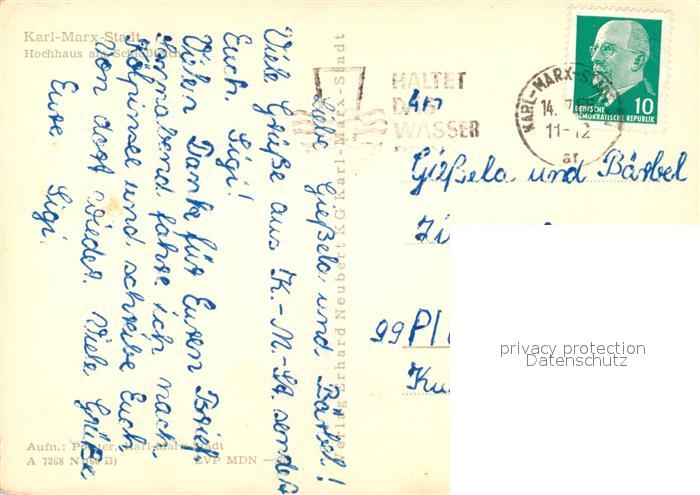 Karl-Marx-Stadt
Hochhaus am Schloßteich
Liebe Gießela und Bärbel!
Viele Grüße aus K.-M.-St. sendet
Euch Sigi!
Vielen Dank für Euren Brief.
Sonnabend fahre ich nach
Kölpinsee und schreibe Euch
von dort wieder. Viele Grüße
Eure
Sigi.
Aufn.: Karl-Marx-Stadt
A 7268 N
EVP MDN
Verlag Erhard Neubert KG Karl-Marx-Stadt
HALTET
DAS
WASSER
KARL-MARX-STADT
14. 7.
11-12
ar
DEUTSCHE
DEMOKRATISCHE REPUBLIK
10
An
Gießela und Bärbel
99 Pl
privacy protection
Datenschutz